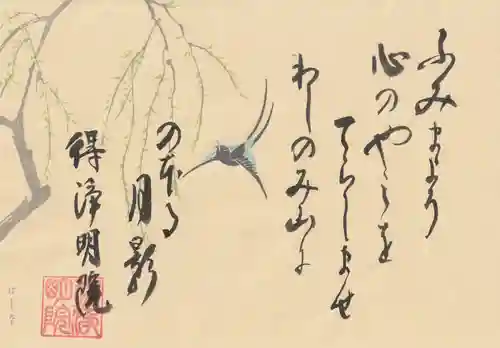 ふみまよう
心のやミを
てらしませ
わしのみ山に
のほる
月影
得浄明院